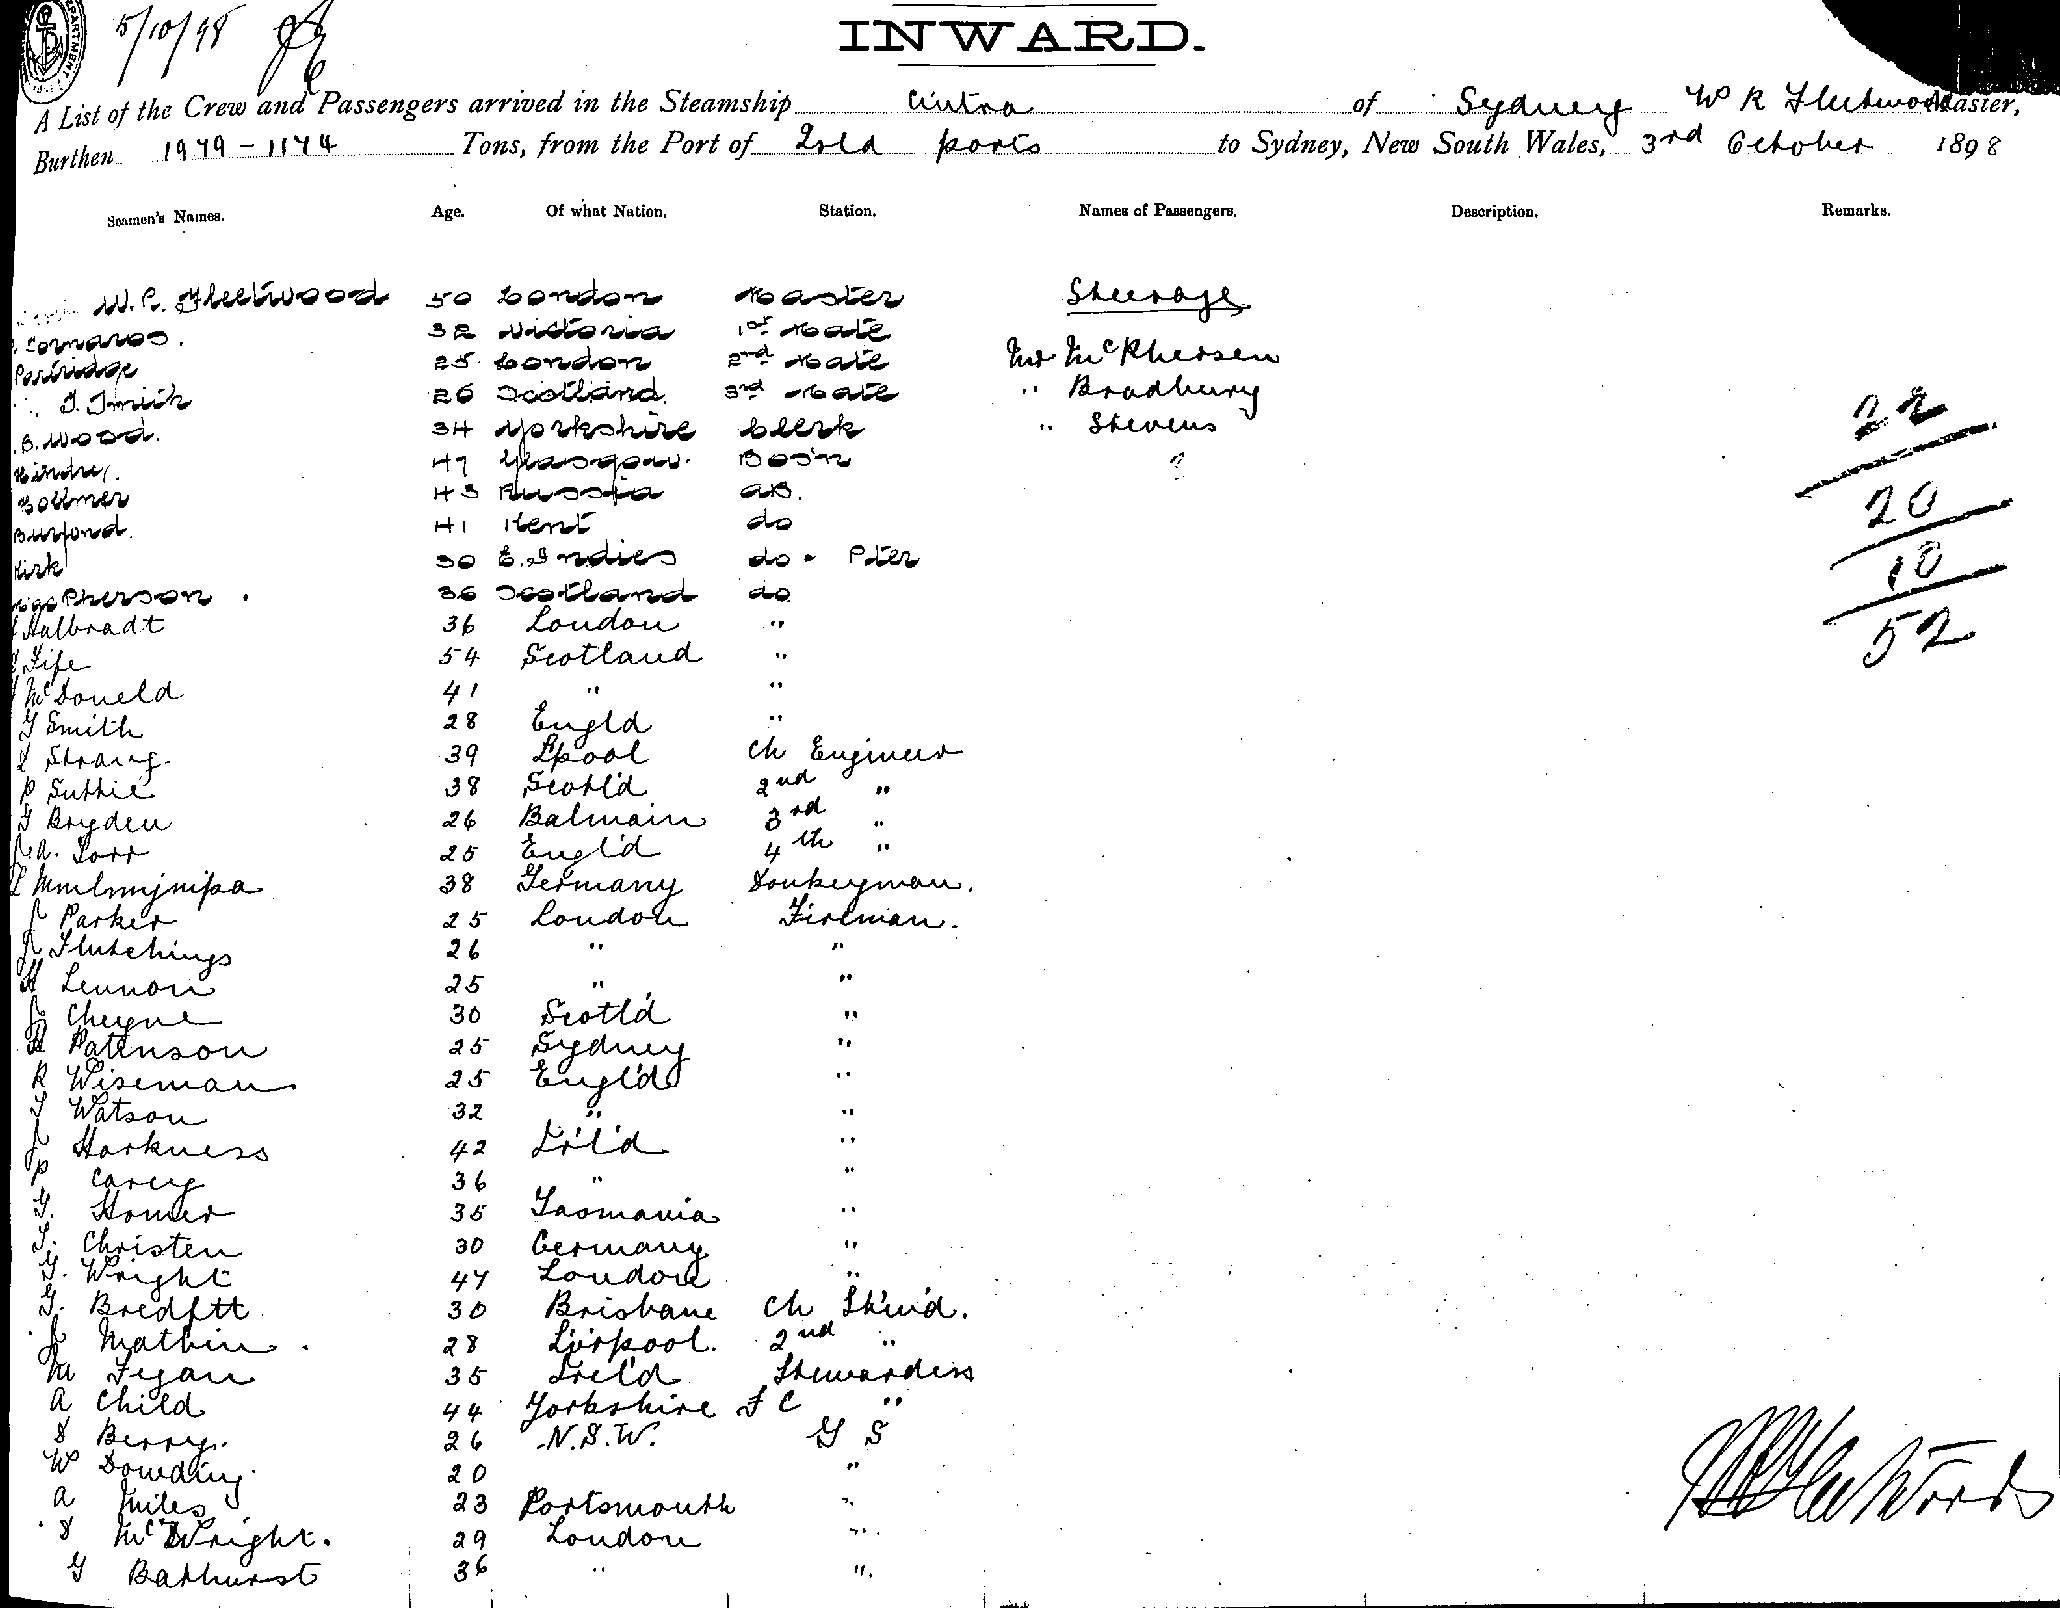 5/10/98
INWARD.
A List of the Crew and Passengers arrived in the Steamship Cintra of Sydney W R Fleetwood Master,
Burthen 1979 - 1174 Tons, from the Port of Qsld ports to Sydney, New South Wales, 3rd October 1898
Seamen's Names. Age. Of what Nation. Station. Names of Passengers. Description. Remarks.
W. R. Fleetwood 50 London Master Steerage
32 Victoria 1st Mate
Partridge 25 London 2nd Mate Mr McPhersen
J. Smith 26 Scotland 3rd Mate " Bradbury
B. Wood. 34 Yorkshire Clerk " Stevens
47 Glasgow. Bos'n ?
Bollmer 43 Russia AB.
Burfond. 41 Kent do
Kirk 30 E. Indies do - Pter
Pherson 36 Scotland do
Halbradt 36 London "
Fife 54 Scotland "
McDoneld 41 " "
G Smith 28 Engld "
Strang. 39 Lpool Ch Engineer
P Suttie 38 Scotl'd 2nd "
G Bryden 26 Balmain 3rd "
J. A. Torr 25 Engl'd 4th "
38 Germany Donkeyman.
J Parker 25 London Fireman.
Hutchings 26 " "
H Lennon 25 " "
J Cheyne 30 Scotl'd "
Patenson 25 Sydney "
R Wiseman 25 Engl'd "
T Watson 32 " "
J Harkness 42 Irl'd "
P Carey 36 " "
G. Homer 35 Tasmania "
T. Christen 30 Germany "
G. Wright 47 London "
G. Bredftt 30 Brisbane Ch Stew'd.
J Mathin 28 Liverpool. 2nd "
M Fegan 35 Irel'd Stewardess
A Child 44 Yorkshire F C "
S Berry. 26 N.S.W. G S
W Dowding 20 "
A Miles 23 Portsmouth "
S McWright. 29 London "
G Bathurst 36 " "
22
20
10
52
W R Fleetwood